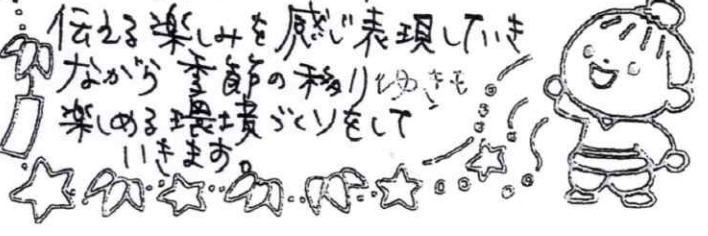 伝える楽しみを感じ表現していき
ながら季節の移りゆきも
楽しめる環境づくりをして
いきます。